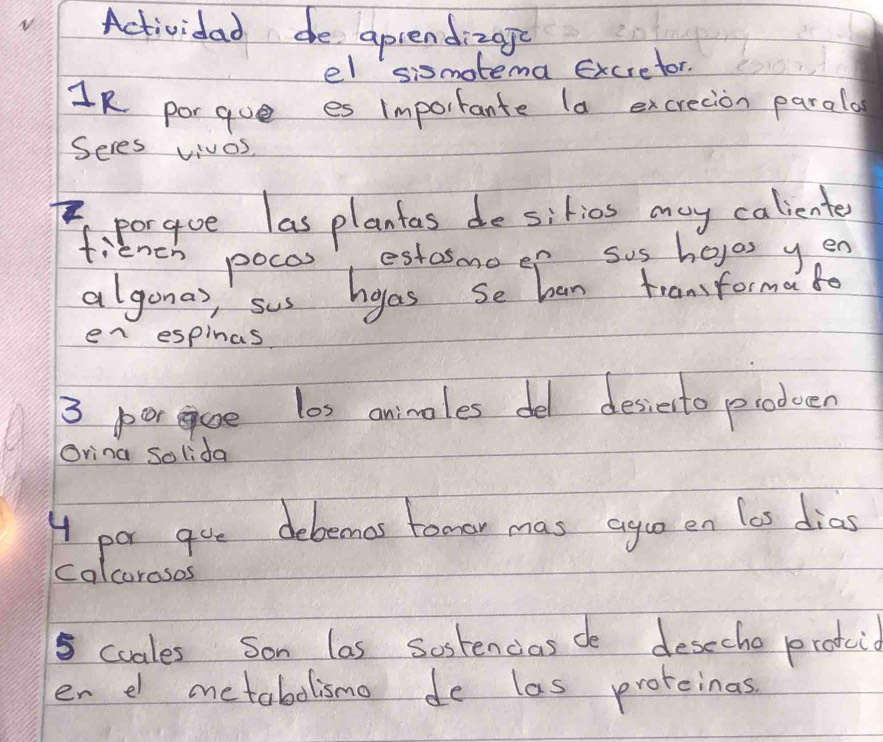 Actividad de aprendizaje
el sismotema Excretor.
1R por que es importante la excreción paralos
Seres vivos.
2 porque las plantas de sitios muy calientes
tienen pocos estosmo en sus hojas y en
algunas, sus hojas se han transformado
en espinas
3 por que los animales del desierto produen
Orina Solida
4 por que debemos tomar mas agua en los dias
Calcurosos
5 cuales Son las Sostencias de desecho
en el metabolismo de las proteinas.